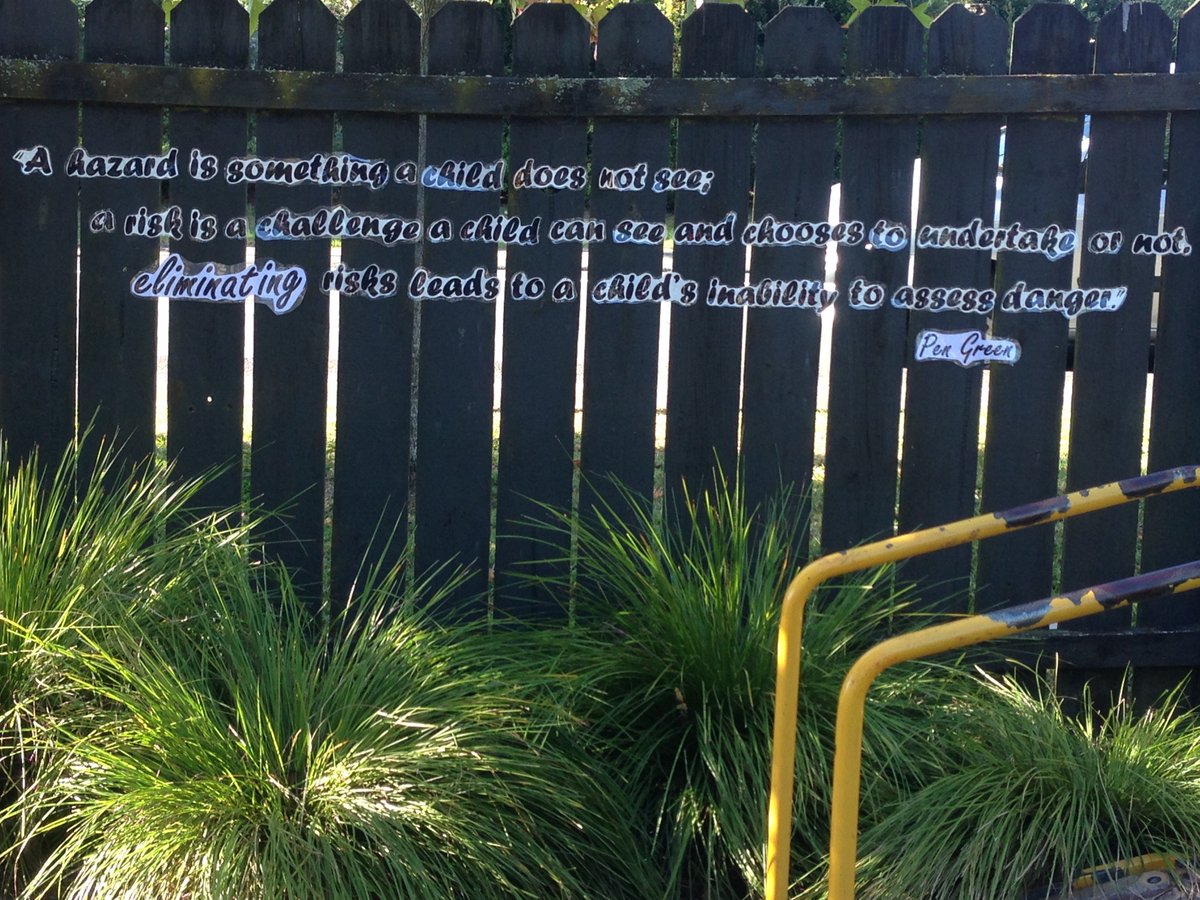 "A hazard is something a child does not see;
a risk is a challenge a child can see and chooses to undertake or not.
eliminating risks leads to a child's inability to assess danger."
Pen Green